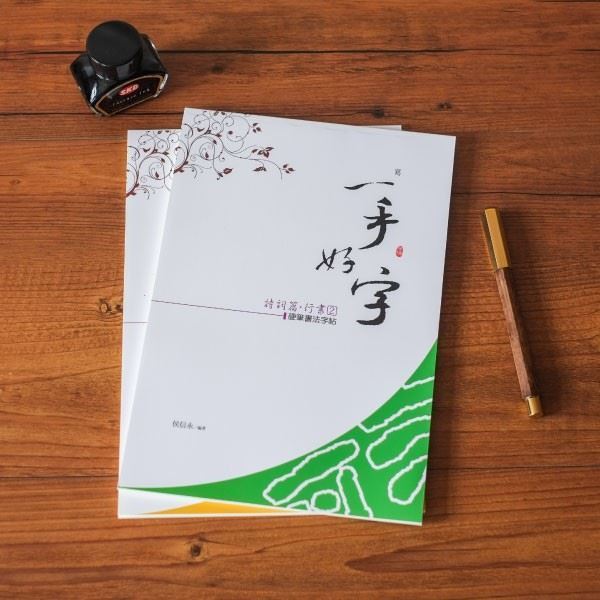 SKB
寫
一手
好字
詩詞篇·行書2
硬筆書法字帖
侯信永／編著